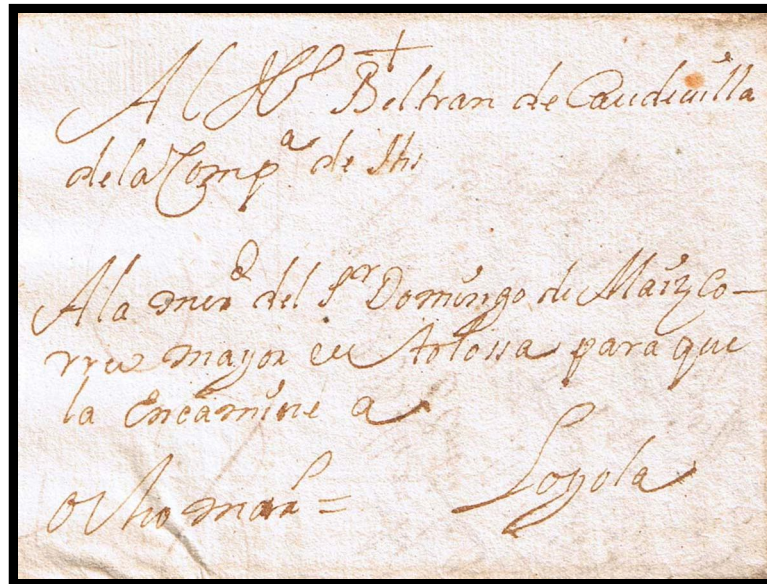 +
Al Hº Beltran de Caudevilla
de la Compª de Jhs
A la merd del Sr Domingo de Maiz Co-
rreo mayor en Tolossa para que
la Encamine a
Loyola
ocho mars =